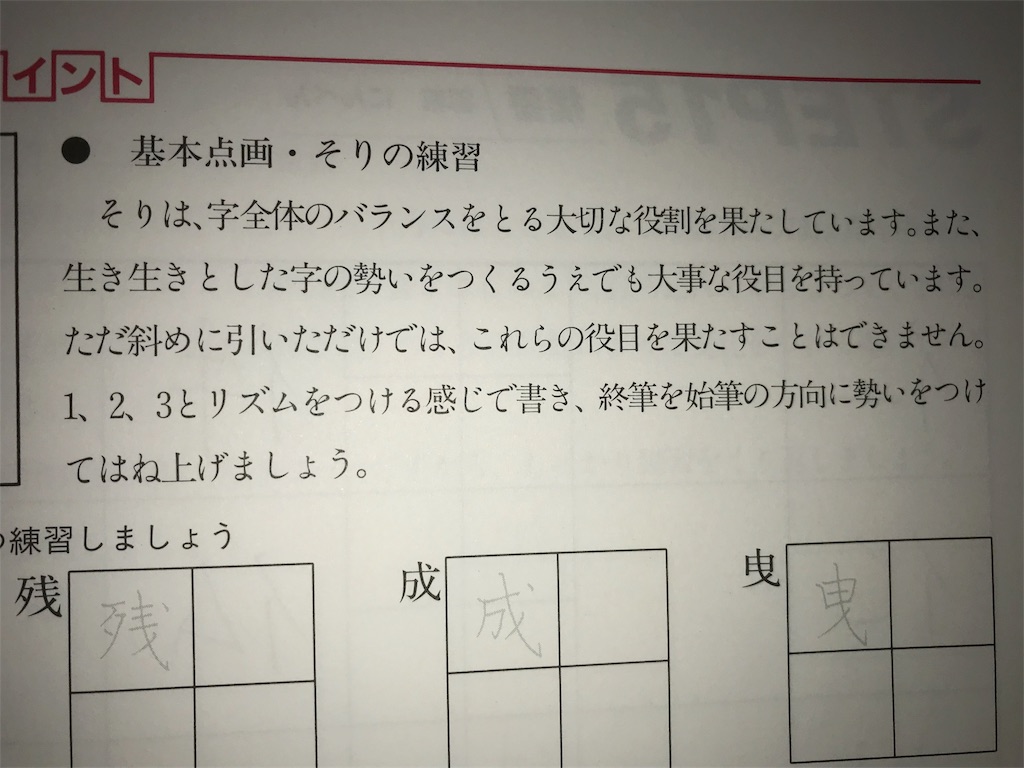 イント
● 基本点画・そりの練習
そりは、字全体のバランスをとる大切な役割を果たしています。また、
生き生きとした字の勢いをつくるうえでも大事な役目を持っています。
ただ斜めに引いただけでは、これらの役目を果たすことはできません。
1、2、3とリズムをつける感じで書き、終筆を始筆の方向に勢いをつけ
てはね上げましょう。
練習しましょう
残 残
成 成
曳 曳